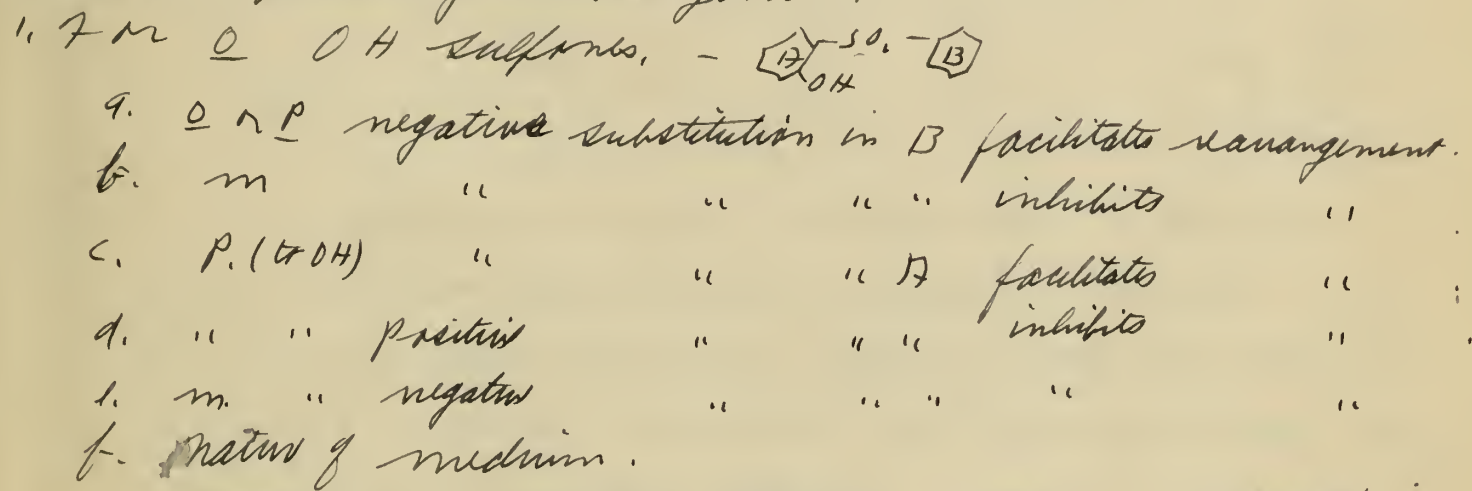 1. For o OH sulfones. - A SO2 - B OH
a. o or p negative substitution in B facilitates rearrangement.
b. m " " " " inhibits "
c. p. (to OH) " " " A facilitates "
d. " " positive " " " inhibits "
e. m. " negative " " " " "
f. nature of medium.